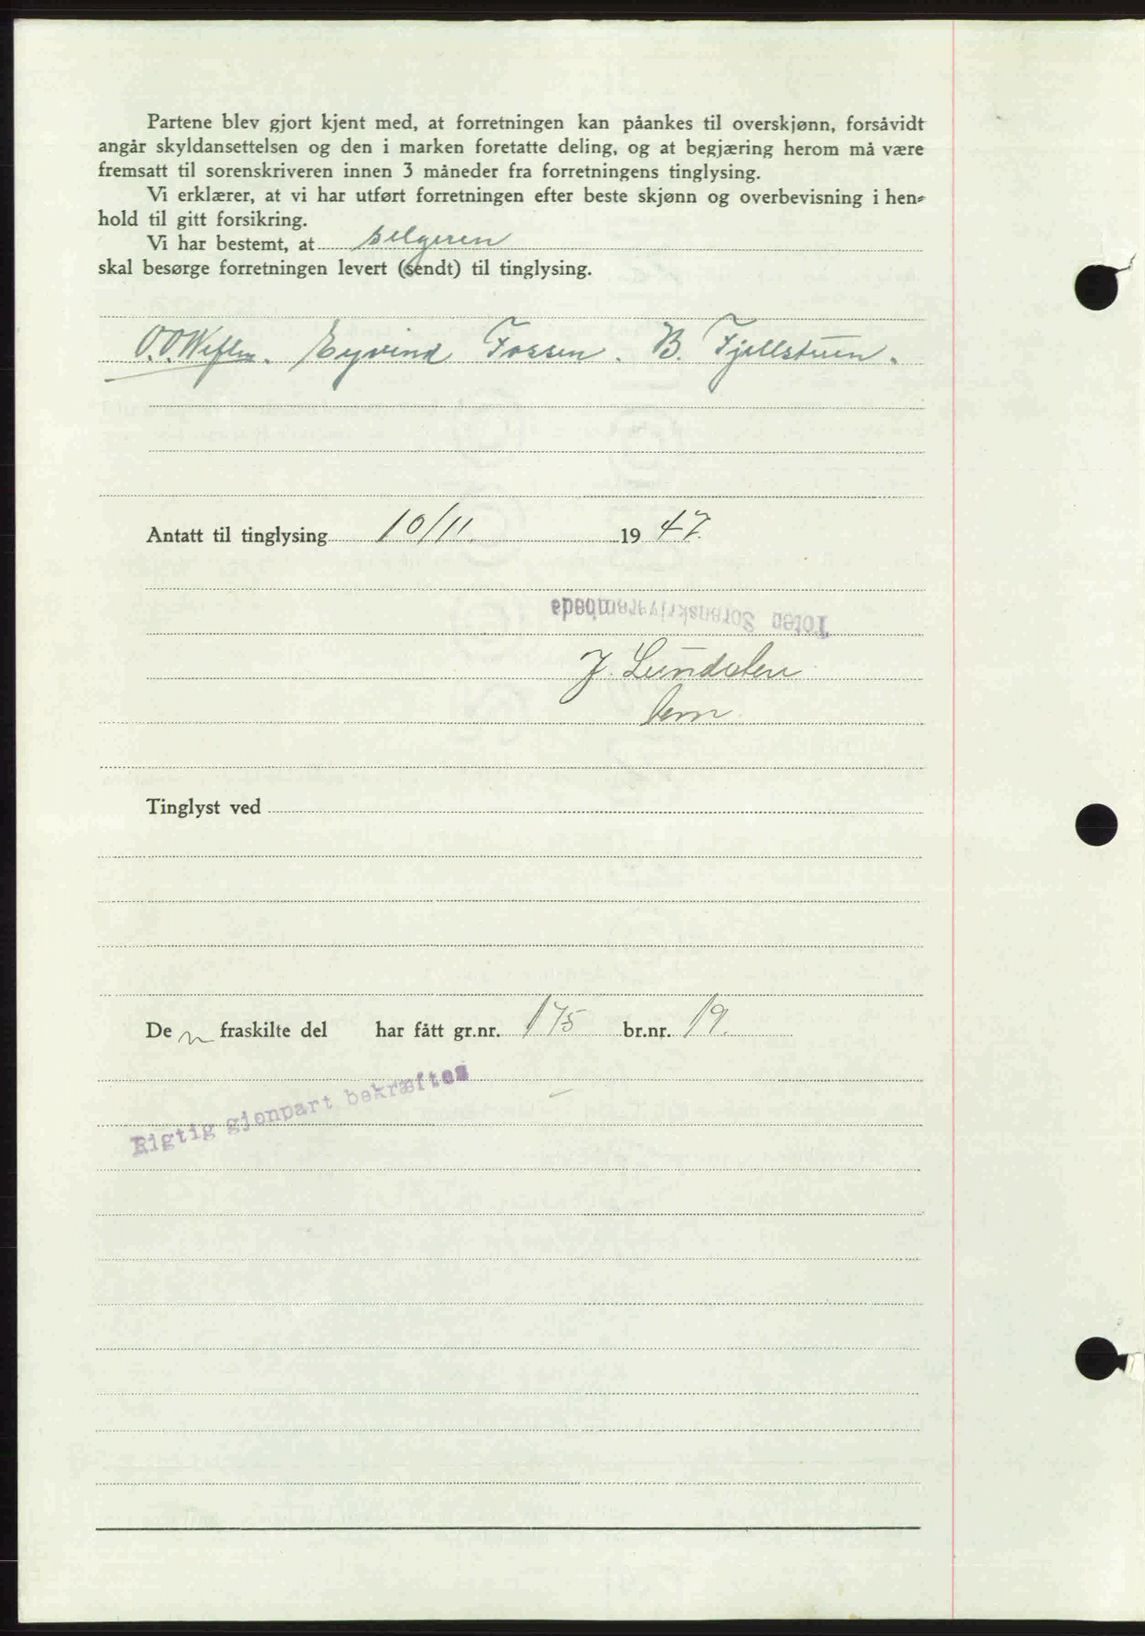 Partene blev gjort kjent med, at forretningen kan påankes til overskjønn, forsåvidt
angår skyldansettelsen og den i marken foretatte deling, og at begjæring herom må være
fremsatt til sorenskriveren innen 3 måneder fra forretningens tinglysing.
Vi erklærer, at vi har utført forretningen efter beste skjønn og overbevisning i hen-
hold til gitt forsikring.
Vi har bestemt, at selgeren
skal besørge forretningen levert (sendt) til tinglysing.
Eyvind Fossen. B. Fjellstuen.
Antatt til tinglysing 10/11. 1947.
Toten Sorenskriverembede
J. Lundalen
Tinglyst ved
De n fraskilte del har fått gr.nr. 175 br.nr. 19.
Rigtig gjenpart bekræftes